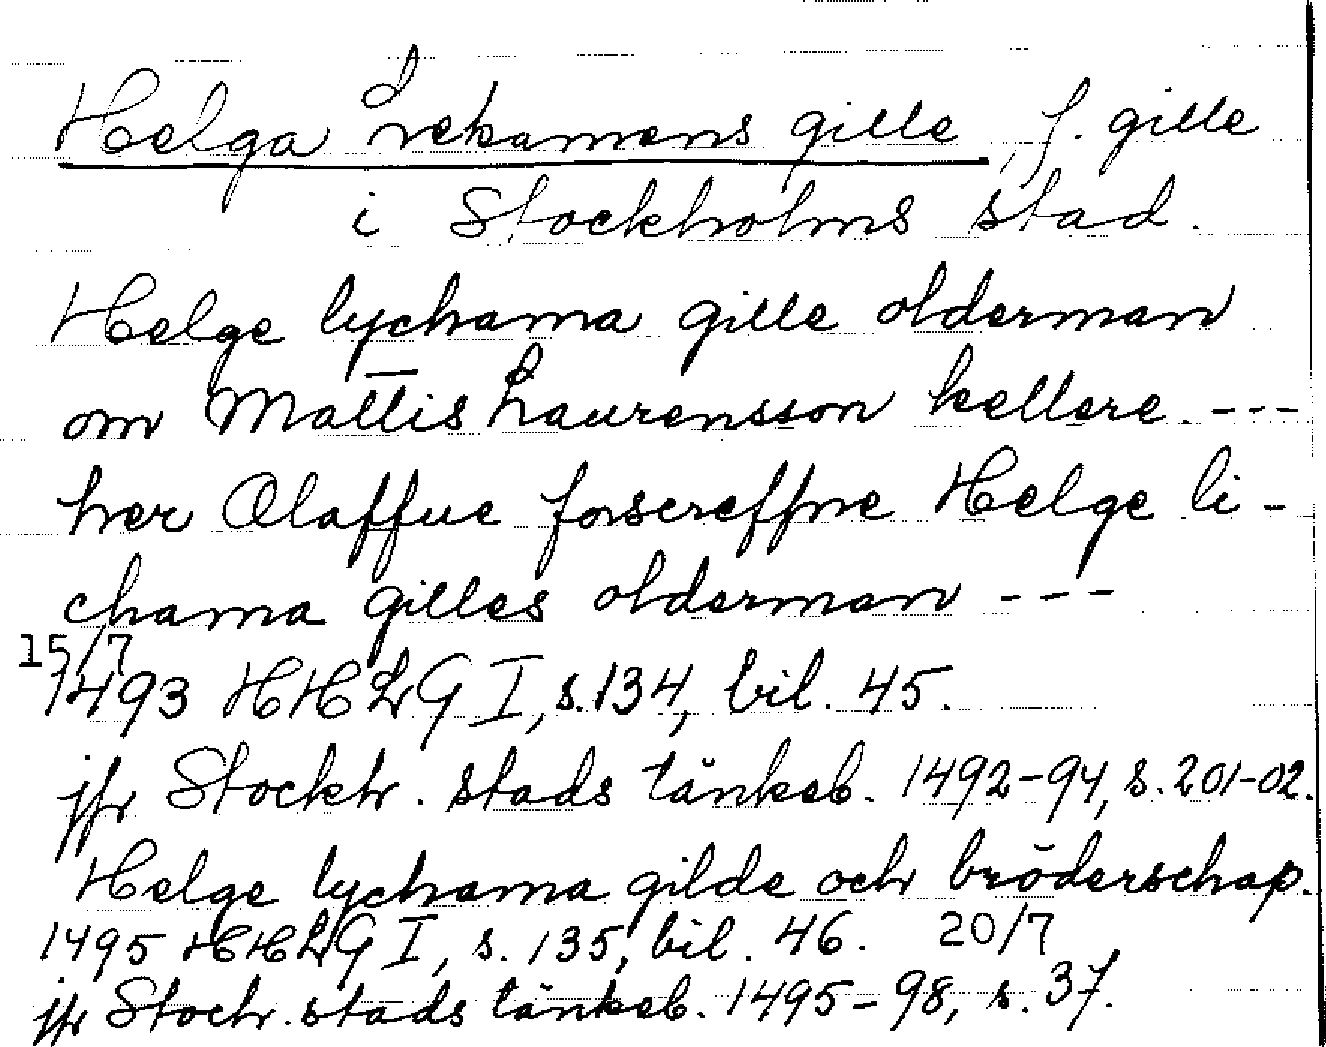 Helga Lekamens gille, f. gille
i Stockholms stad.
Helge lychama gille olderman
om Mattis Laurensson kellere. ---
her Olaffue forscreffne Helge li-
chama gilles olderman ---
15/7
1493 HHLG I, s. 134, bil. 45.
jfr Stockh. stads tänkeb. 1492-94, s. 201-02.
Helge lychama gilde och bröderschap.
1495 HHLG I, s. 135, bil. 46. 20/7
jfr Stoch. stads tänkeb. 1495-98, s. 37.